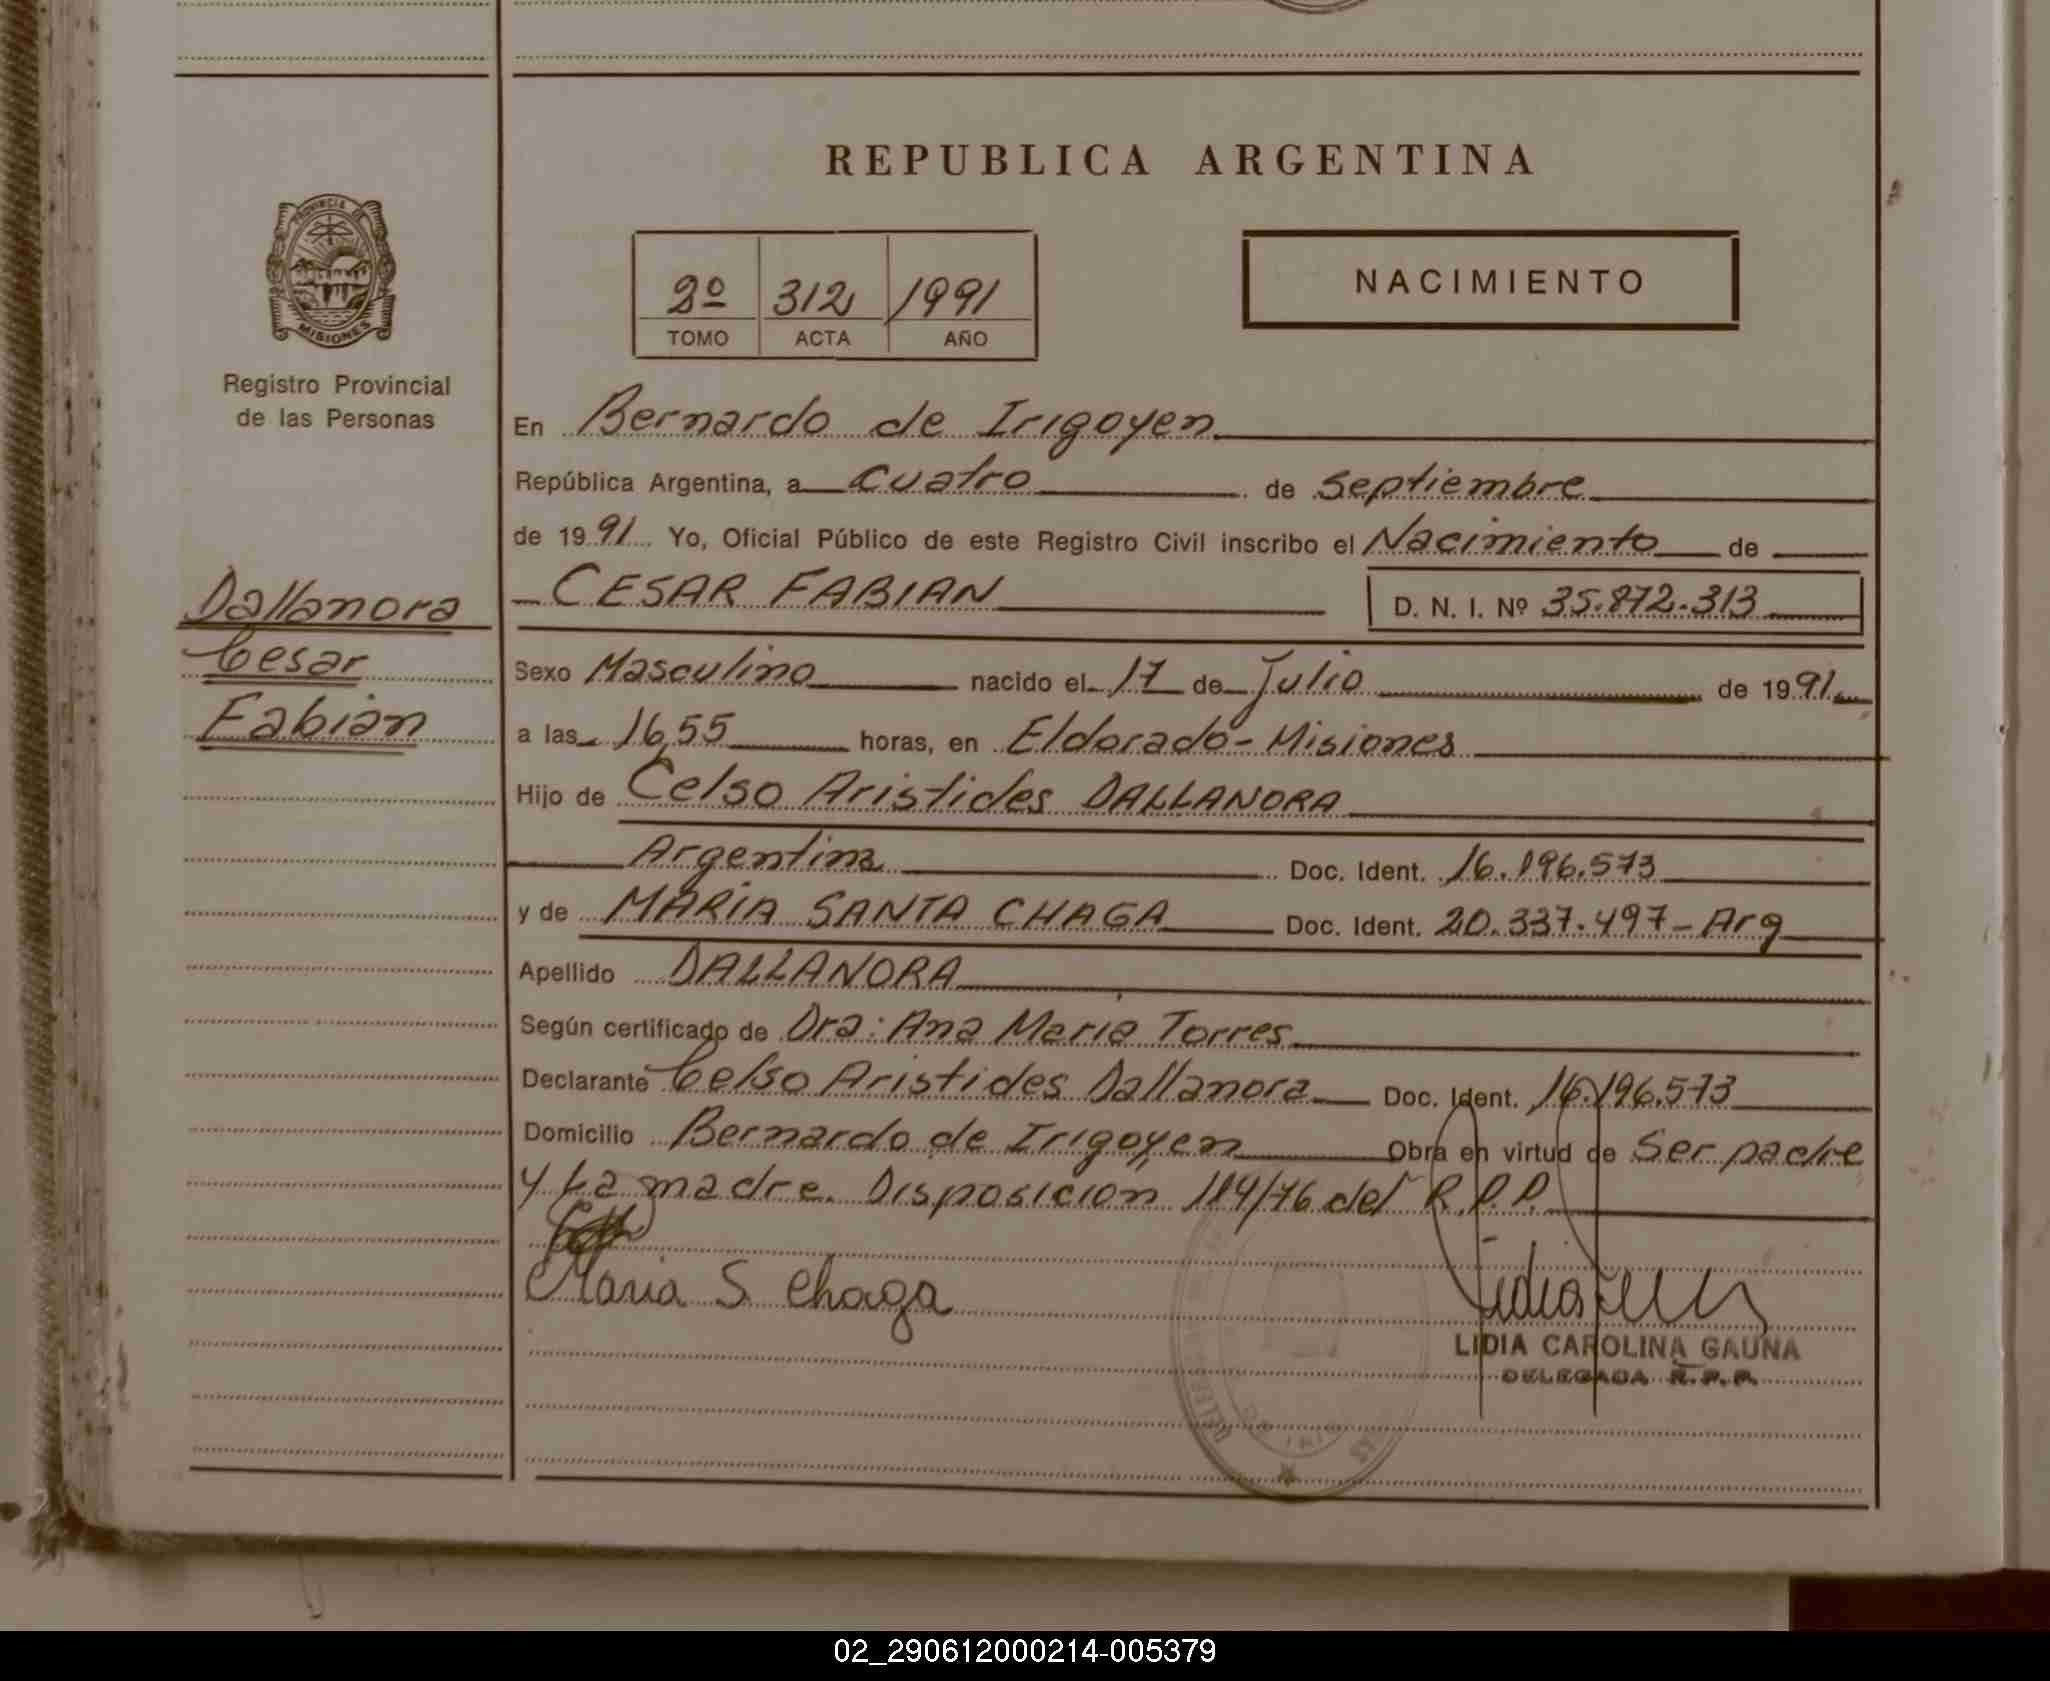 REPUBLICA ARGENTINA
PROVINCIA DE
MISIONES
Registro Provincial
de las Personas
2º 312 1991
TOMO ACTA AÑO
NACIMIENTO
En Bernardo de Irigoyen
República Argentina, a cuatro de septiembre
de 1991 Yo, Oficial Público de este Registro Civil inscribo el Nacimiento de
Dallanora
Cesar
Fabian
CESAR FABIAN D. N. I. Nº 35.872.313
Sexo Masculino nacido el 17 de Julio de 1991
a las 16,55 horas, en Eldorado - Misiones
Hijo de Celso Aristides DALLANORA
Argentina Doc. Ident. 16.196.573
y de MARIA SANTA CHAGA Doc. Ident. 20.337.497 - Arg
Apellido DALLANORA
Según certificado de Dra: Ana Maria Torres
Declarante Celso Aristides Dallanora Doc. Ident. 16.196.573
Domicilio Bernardo de Irigoyen Obra en virtud de Ser padre
y La madre. Disposicion 114/76 del R.P.P.
Maria S Chaga
LIDIA CAROLINA GAUNA
DELEGADA R.P.P.
02_290612000214-005379